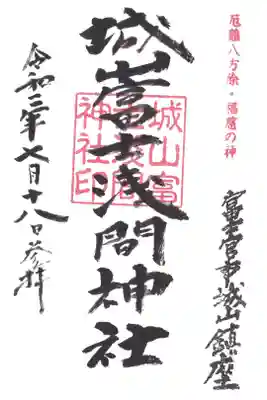 厄難八方除・の神
富士宮市城山鎮座
城山富士浅間神社
城山富士浅間神社印
令和二年七月十八日参拝